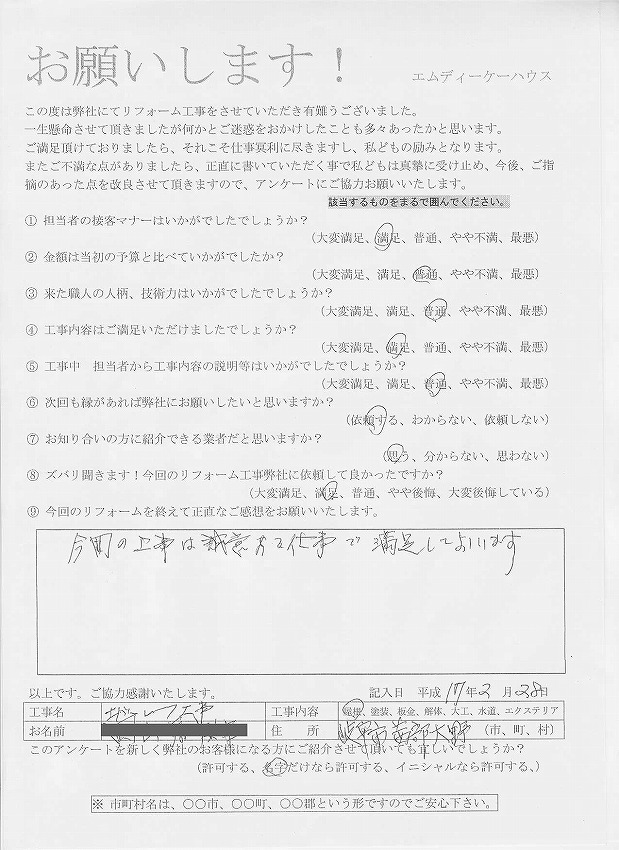 お願いします！ エムディーケーハウス
この度は弊社にてリフォーム工事をさせていただき有難うございました。
一生懸命させて頂きましたが何かとご迷惑をおかけしたことも多々あったかと思います。
ご満足頂けておりましたら、それこそ仕事冥利に尽きますし、私どもの励みとなります。
またご不満な点がありましたら、正直に書いていただく事で私どもは真摯に受け止め、今後、ご指
摘のあった点を改良させて頂きますので、アンケートにご協力お願いいたします。
該当するものをまるで囲んでください。
① 担当者の接客マナーはいかがでしたでしょうか？
（大変満足、満足、普通、やや不満、最悪）
② 金額は当初の予算と比べていかがでしたか？
（大変満足、満足、普通、やや不満、最悪）
③ 来た職人の人柄、技術力はいかがでしたでしょうか？
（大変満足、満足、普通、やや不満、最悪）
④ 工事内容はご満足いただけましたでしょうか？
（大変満足、満足、普通、やや不満、最悪）
⑤ 工事中　担当者から工事内容の説明等はいかがでしたでしょうか？
（大変満足、満足、普通、やや不満、最悪）
⑥ 次回も縁があれば弊社にお願いしたいと思いますか？
（依頼する、わからない、依頼しない）
⑦ お知り合いの方に紹介できる業者だと思いますか？
（思う、分からない、思わない）
⑧ ズバリ聞きます！今回のリフォーム工事弊社に依頼して良かったですか？
（大変満足、満足、普通、やや後悔、大変後悔している）
⑨ 今回のリフォームを終えて正直なご感想をお願いいたします。
今回の工事は誠意ある仕事で満足しております
以上です。ご協力感謝いたします。 記入日　平成 17 年 2 月 28 日
工事名 工事 工事内容 屋根、塗装、板金、解体、大工、水道、エクステリア
お名前 住　所 岐阜市茜部大野 （市、町、村）
このアンケートを新しく弊社のお客様になる方にご紹介させて頂いても宜しいでしょうか？
（許可する、名字だけなら許可する、イニシャルなら許可する、）
※ 市町村名は、〇〇市、〇〇町、〇〇郡という形ですのでご安心下さい。